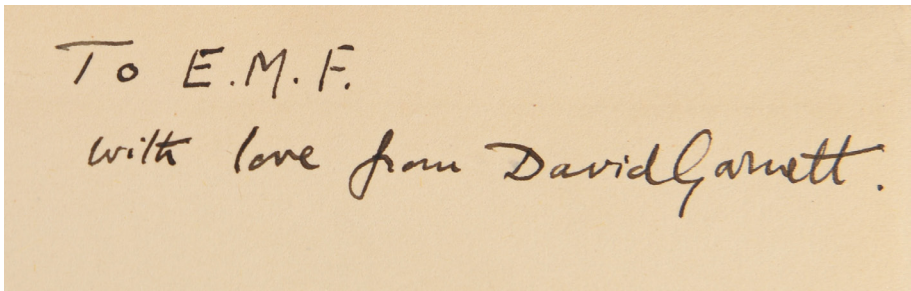 To E.M.F.
with love from David Garnett.